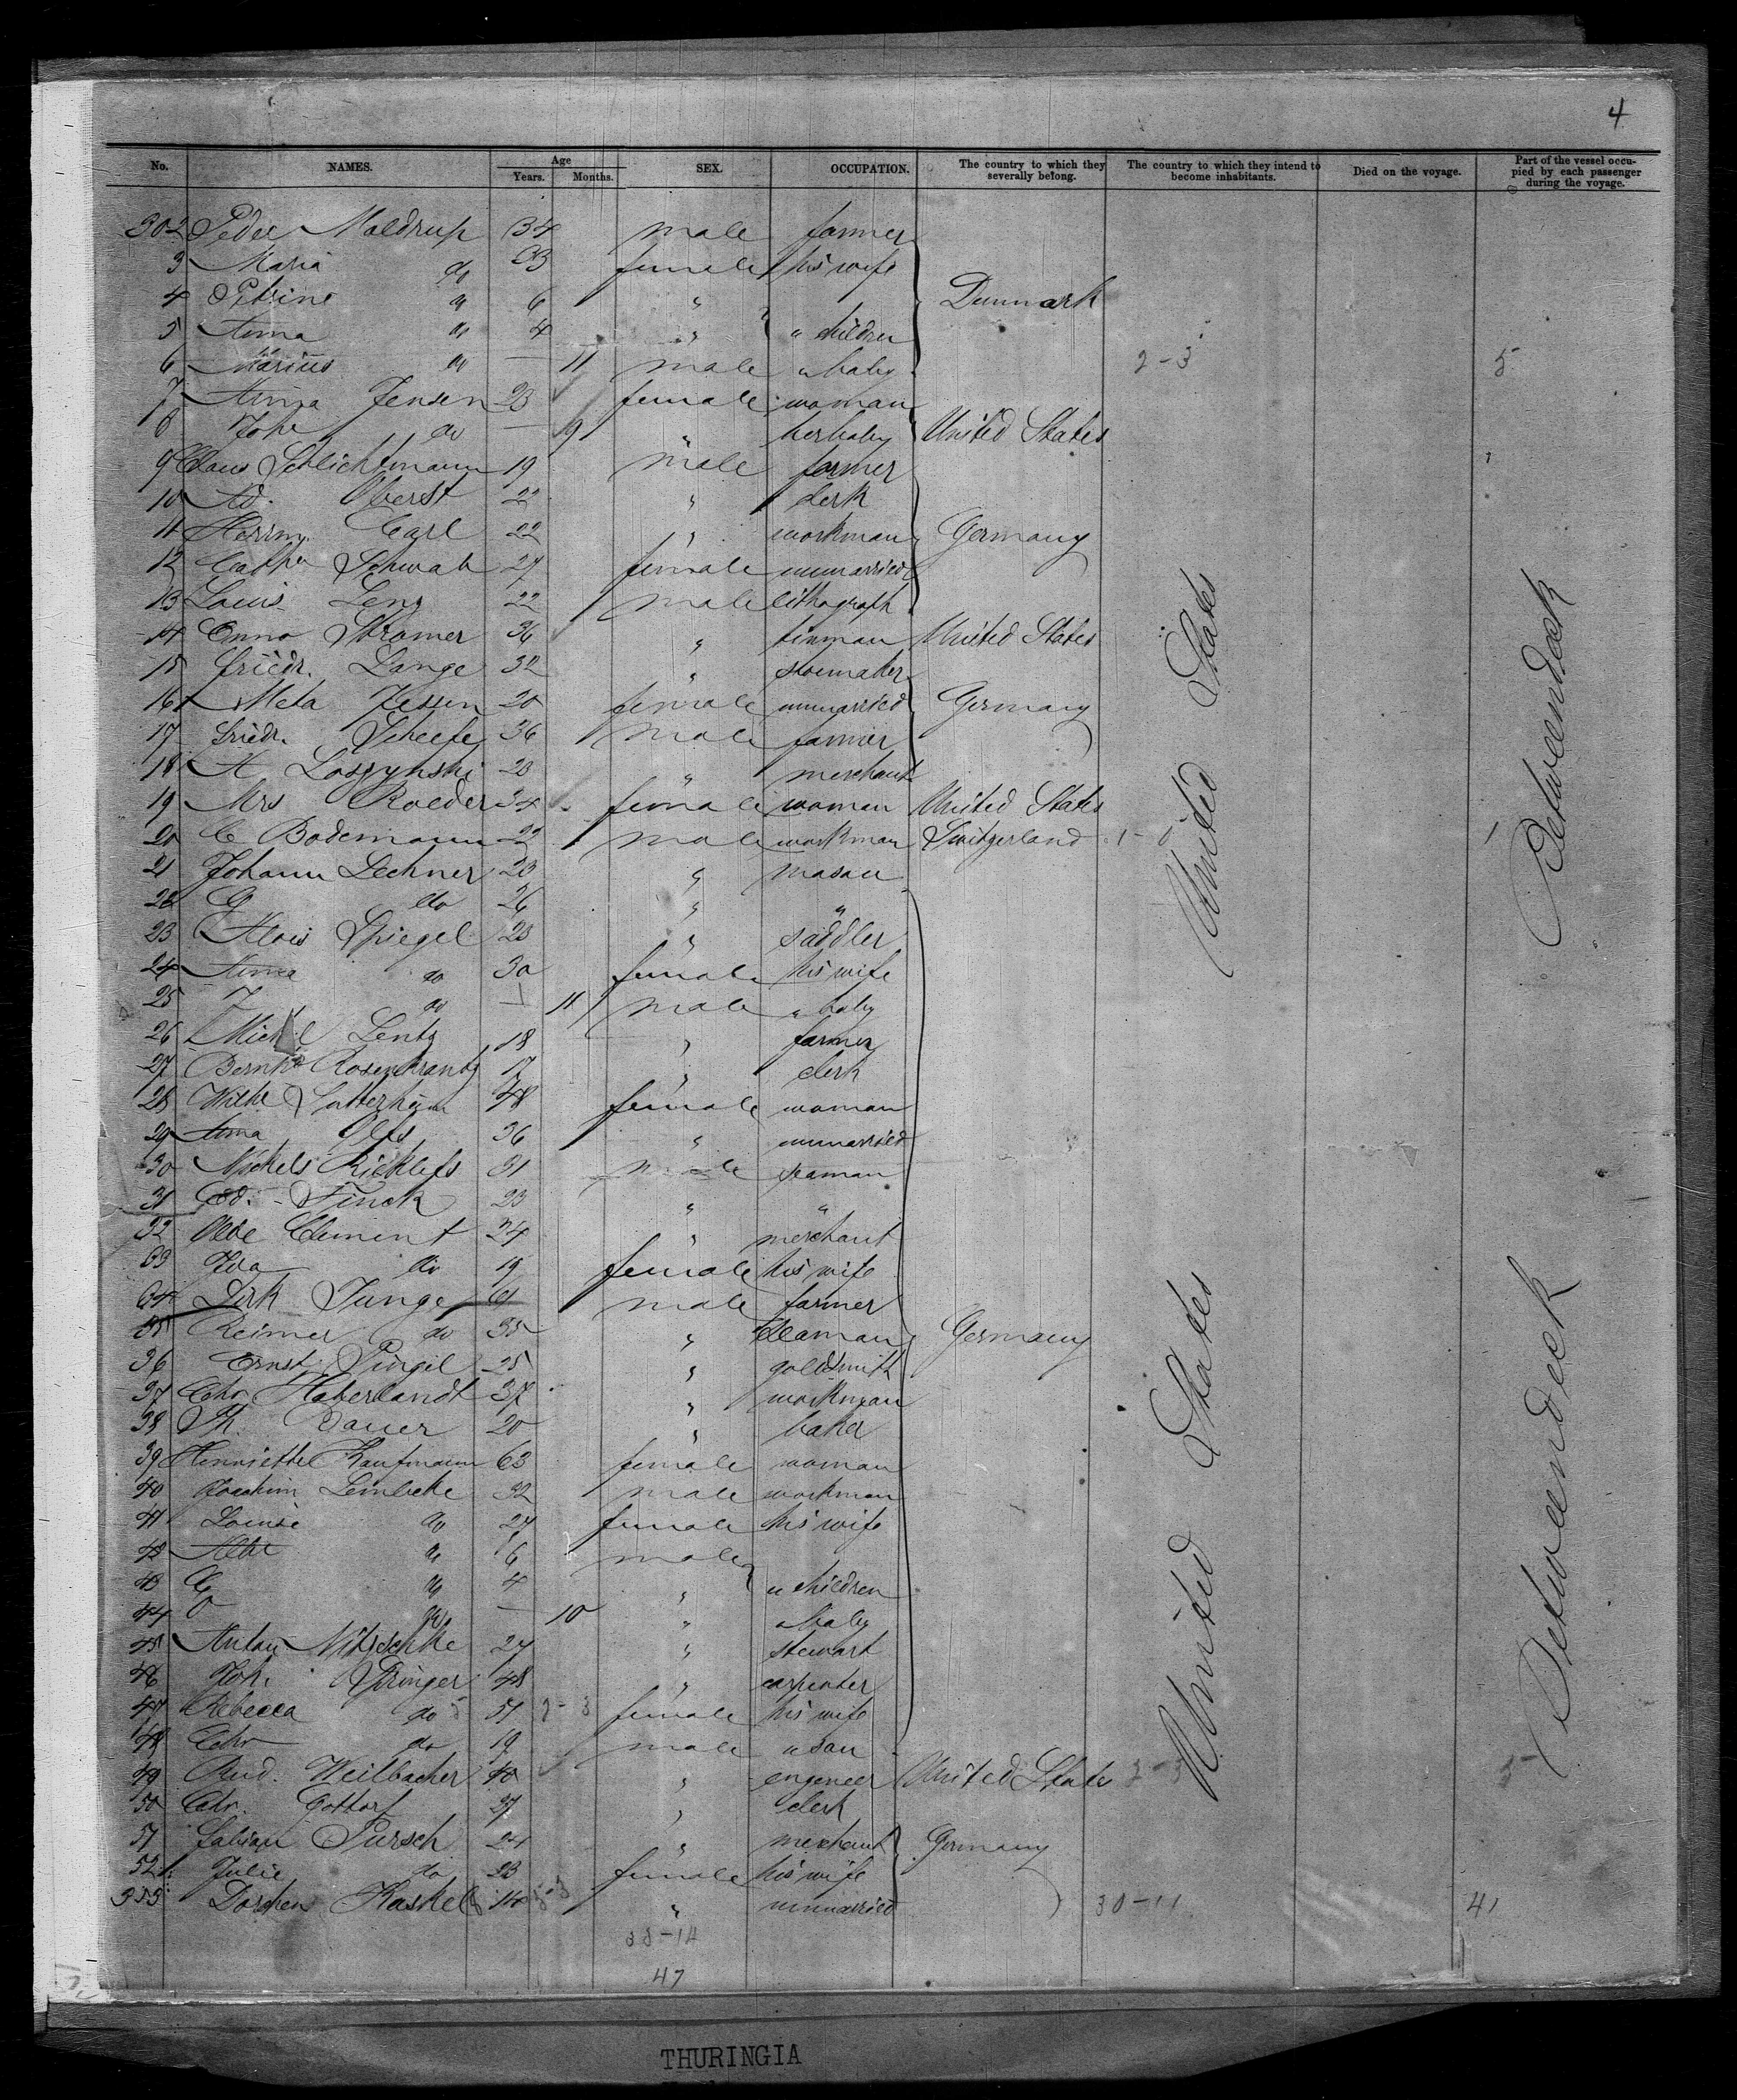 4
No. NAMES. Age Years. Months. SEX. OCCUPATION. The country to which they severally belong. The country to which they intend to become inhabitants. Died on the voyage. Part of the vessel occupied by each passenger during the voyage.
302 Peder Maldrup 34 male farmer
3 Maria do 33 female his wife
4 Petrine do 6 " Denmark
5 Anna do 4 " " children
6 Marius do — 11 male " baby 2-3 5
7 Anna Jensen 23 female woman
8 Johe do — 9 " her baby United States
9 Claus Schlichtmann 19 male farmer
10 Ad. Oberst 22 " clerk
11 Herrm. Carl 22 " workman Germany
12 Cathr Schwab 27 female unmarried
13 Louis Lenz 22 male lithograph
14 Enno Stromer 36 " tinman United States
15 Friedr. Lange 32 " shoemaker
16 Meta Jessen 20 female unmarried Germany
17 Friedr. Scheefe 36 male farmer
18 A Loszynski 23 " merchant
19 Mrs Roeder 34 female woman United States
20 C Bodemann 22 male workman Switzerland 1-0 1
21 Johann Lechner 23 " mason
22 G do 26 " "
23 Alois Spiegel 23 " saddler
24 Anna do 30 female his wife
25 J do — 11 male " baby
26 Michel Lentz 18 " farmer
27 Bernh. Rosenkrantz 17 " clerk
28 Wilhe 48 female woman
29 Anna 36 " unmarried
30 Nickels Ricklefs 31 male seaman
31 Ed. Finck 23 " "
32 Olde Clement 24 " merchant
33 Ida do 19 female his wife
34 Dirk Junge 61 male farmer
35 Reimer do 35 " seaman Germany
36 Ernst Pingil 25 " goldsmith
37 Chr Haberlandt 37 " workman
38 Th. Dauer 20 " baker
39 Henriette Kaufmann 63 female woman
40 Joachim Lembcke 32 male workman
41 Louise do 27 female his wife
42 Albt do 6 male
43 C do 4 " " children
44 O do — 10 " " baby
45 Anton Nitzschke 27 " stewart
46 Joh. Springer 48 " carpenter
47 Rebecca do 51 2-3 female his wife
48 Chr do 19 male " son
49 Rud. Heilbacher 40 " engeneer United States 5
50 Chr. Gottorf 27 " clerk
51 Fabian Pursch 24 " merchant Germany
52 Julie do 23 female his wife
353 Dorchen Kaskel 14 " unmarried 30-11 41
United States
Betweendeck
United States
Betweendeck
33-14
47
THURINGIA